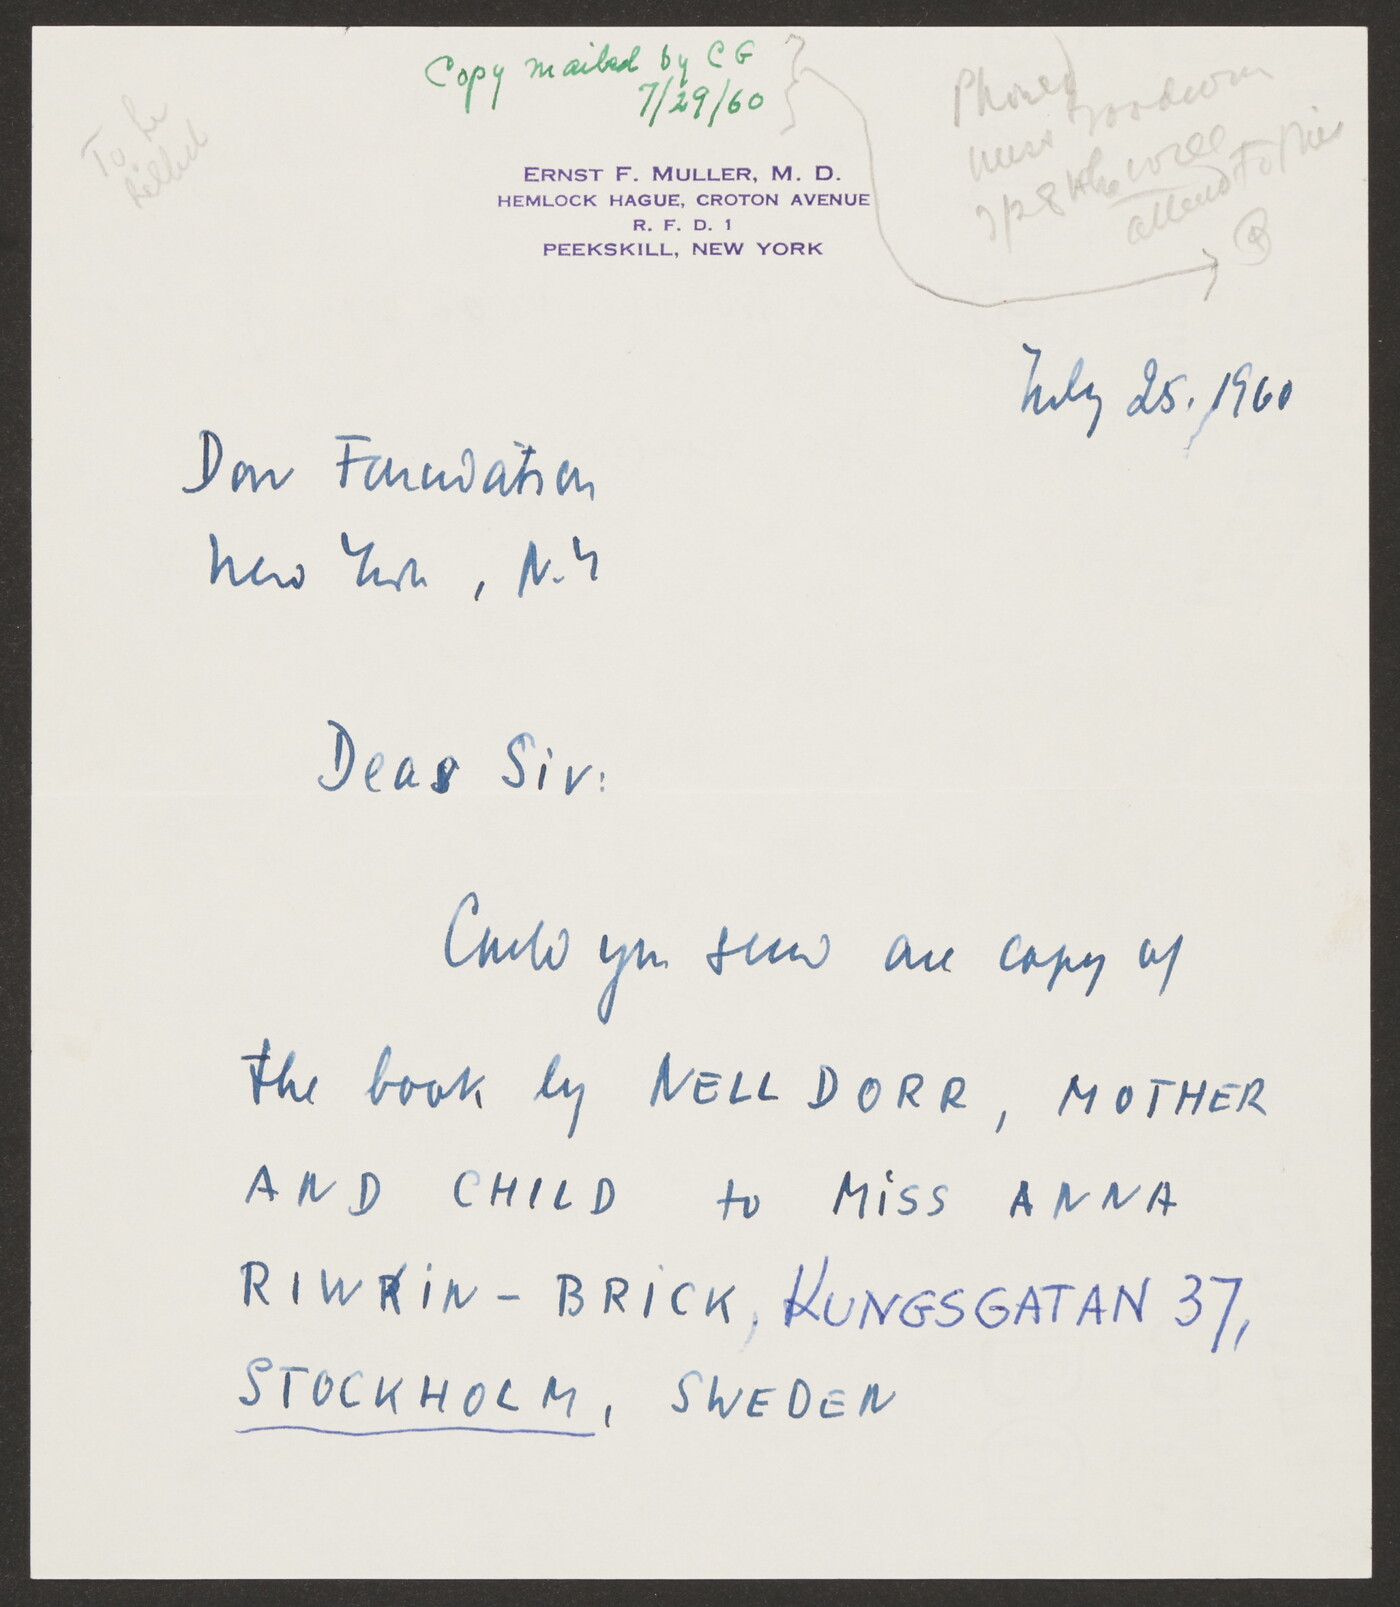 Copy mailed by CG
7/29/60
To be
billed
Phoned
Miss Goodwin
7/28 she will
attend to this
ERNST F. MULLER, M. D.
HEMLOCK HAGUE, CROTON AVENUE
R. F. D. 1
PEEKSKILL, NEW YORK
July 25, 1960
Dorr Foundation
New York, N.Y
Dear Sir:
Could you send one copy of
the book by NELL DORR, MOTHER
AND CHILD to MISS ANNA
RIWKIN-BRICK, KUNGSGATAN 37,
STOCKHOLM, SWEDEN